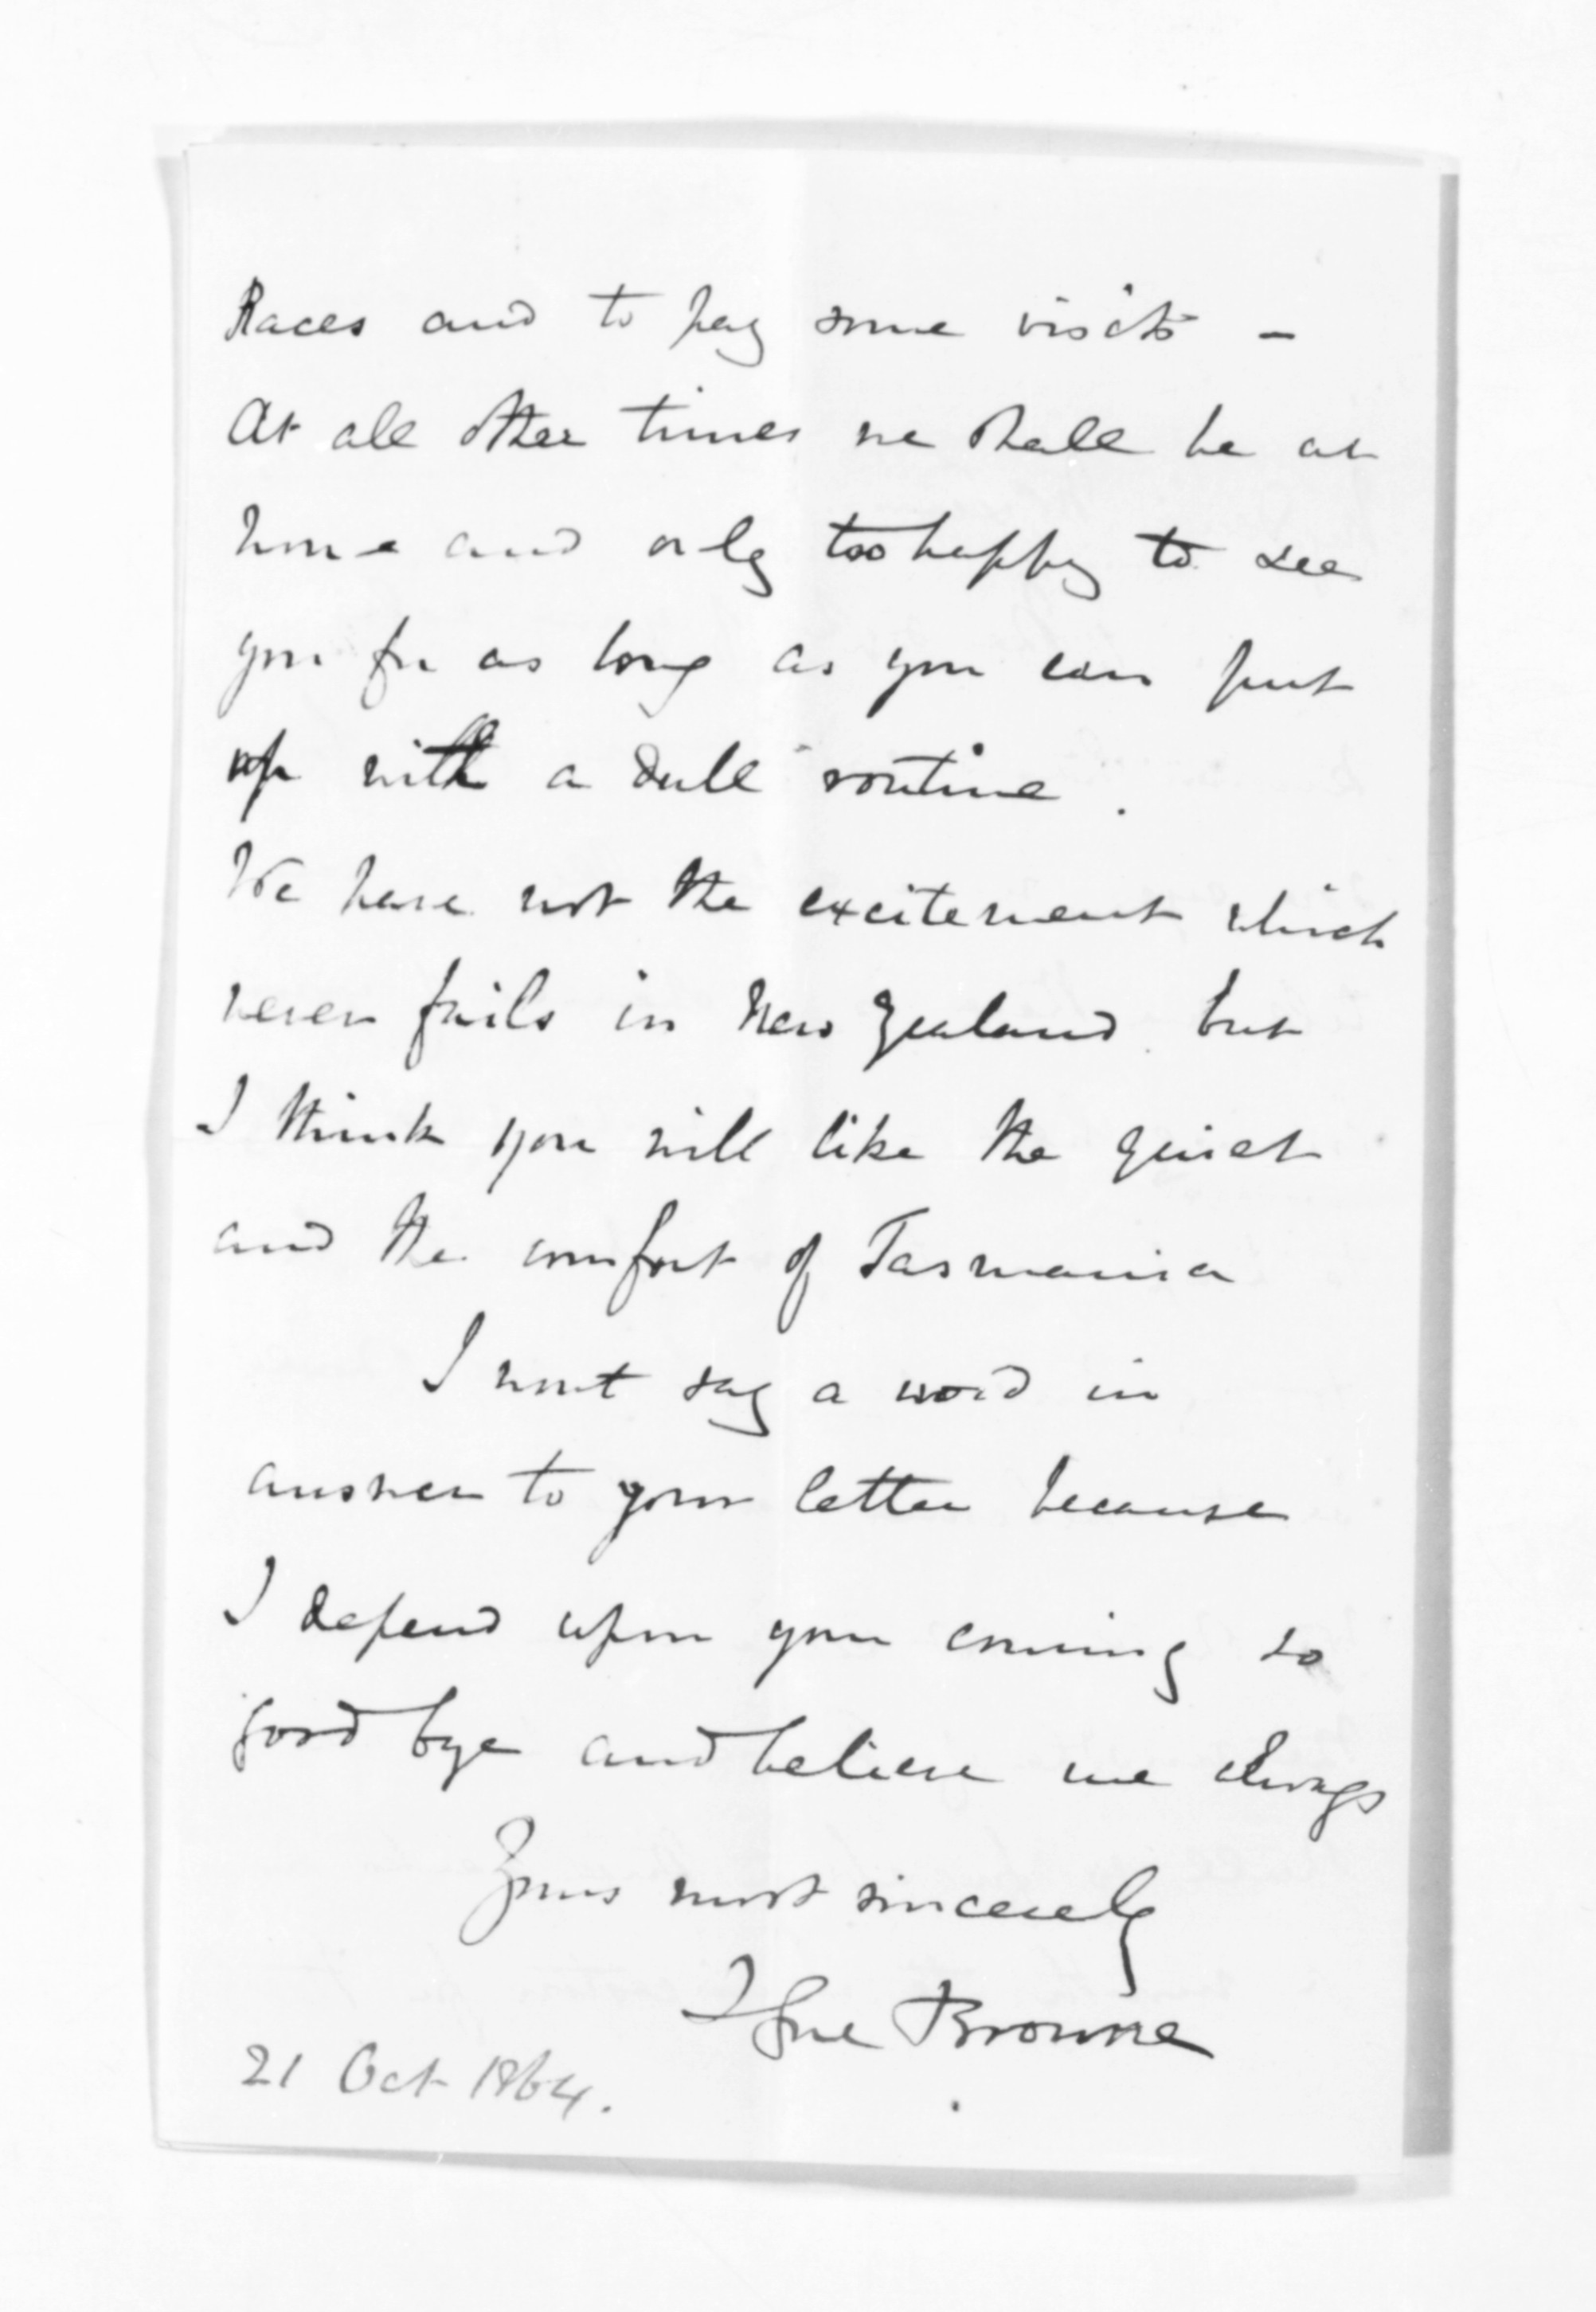 Races and to pay some visits -
At all other times we shall be at
home and only too happy to see
you for as long as you can put
up with a dull routine.
We have not the excitement which
never fails in New Zealand but
I think you will like the quiet
and the comfort of Tasmania
I wont say a word in
answer to your letter because
I depend upon your coming so
good bye and believe me always
Yours most sincerely
T Gore Browne
21 Oct 1864.